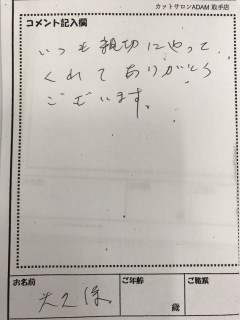 カットサロンADAM 取手店
コメント記入欄
いつも親切にやって
くれてありがとう
ございます。
お名前
ご年齢
ご職業
大久保
歳